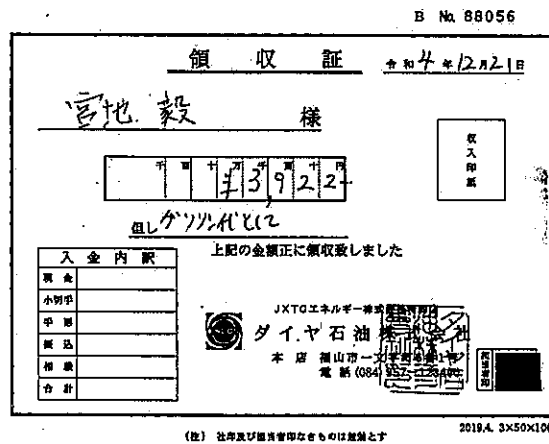 B No. 88056
領収証
令和4年12月21日
宮地 毅 様
収入印紙
千百十万千百十円
¥3,922-
但し ガソリン代として
上記の金額正に領収致しました
入金内訳
現金
小切手
手形
振込
相殺
合計
JXTGエネルギー株式会社
ダイヤ石油株式会社
本店 福山市一文字町
電話(084)957-
担当者印
(注) 社印及び担当者印なきものは無効とす
2019.4. 3×50×100